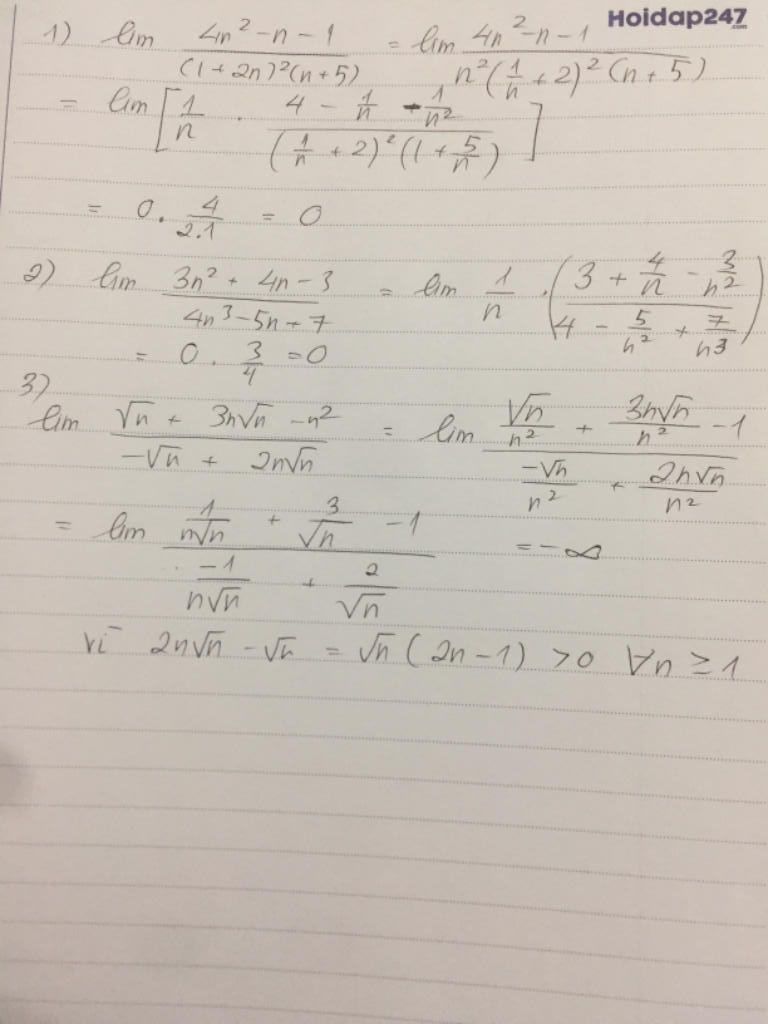 Hoidap247.com
1) lim (4n² - n - 1)/((1 + 2n)²(n + 5)) = lim (4n² - n - 1)/(n²(1/n + 2)²(n + 5))
= lim [1/n . (4 - 1/n - 1/n²)/((1/n + 2)²(1 + 5/n))]
= 0 . 4/(2.1) = 0
2) lim (3n² + 4n - 3)/(4n³ - 5n + 7) = lim 1/n . ((3 + 4/n - 3/n²)/(4 - 5/n² + 7/n³))
= 0 . 3/4 = 0
3)
lim (√n + 3n√n - n²)/(-√n + 2n√n) = lim (√n/n² + 3n√n/n² - 1)/(-√n/n² + 2n√n/n²)
= lim (1/(n√n) + 3/√n - 1)/(-1/(n√n) + 2/√n) = -∞
vì 2n√n - √n = √n (2n - 1) > 0 ∀n ≥ 1